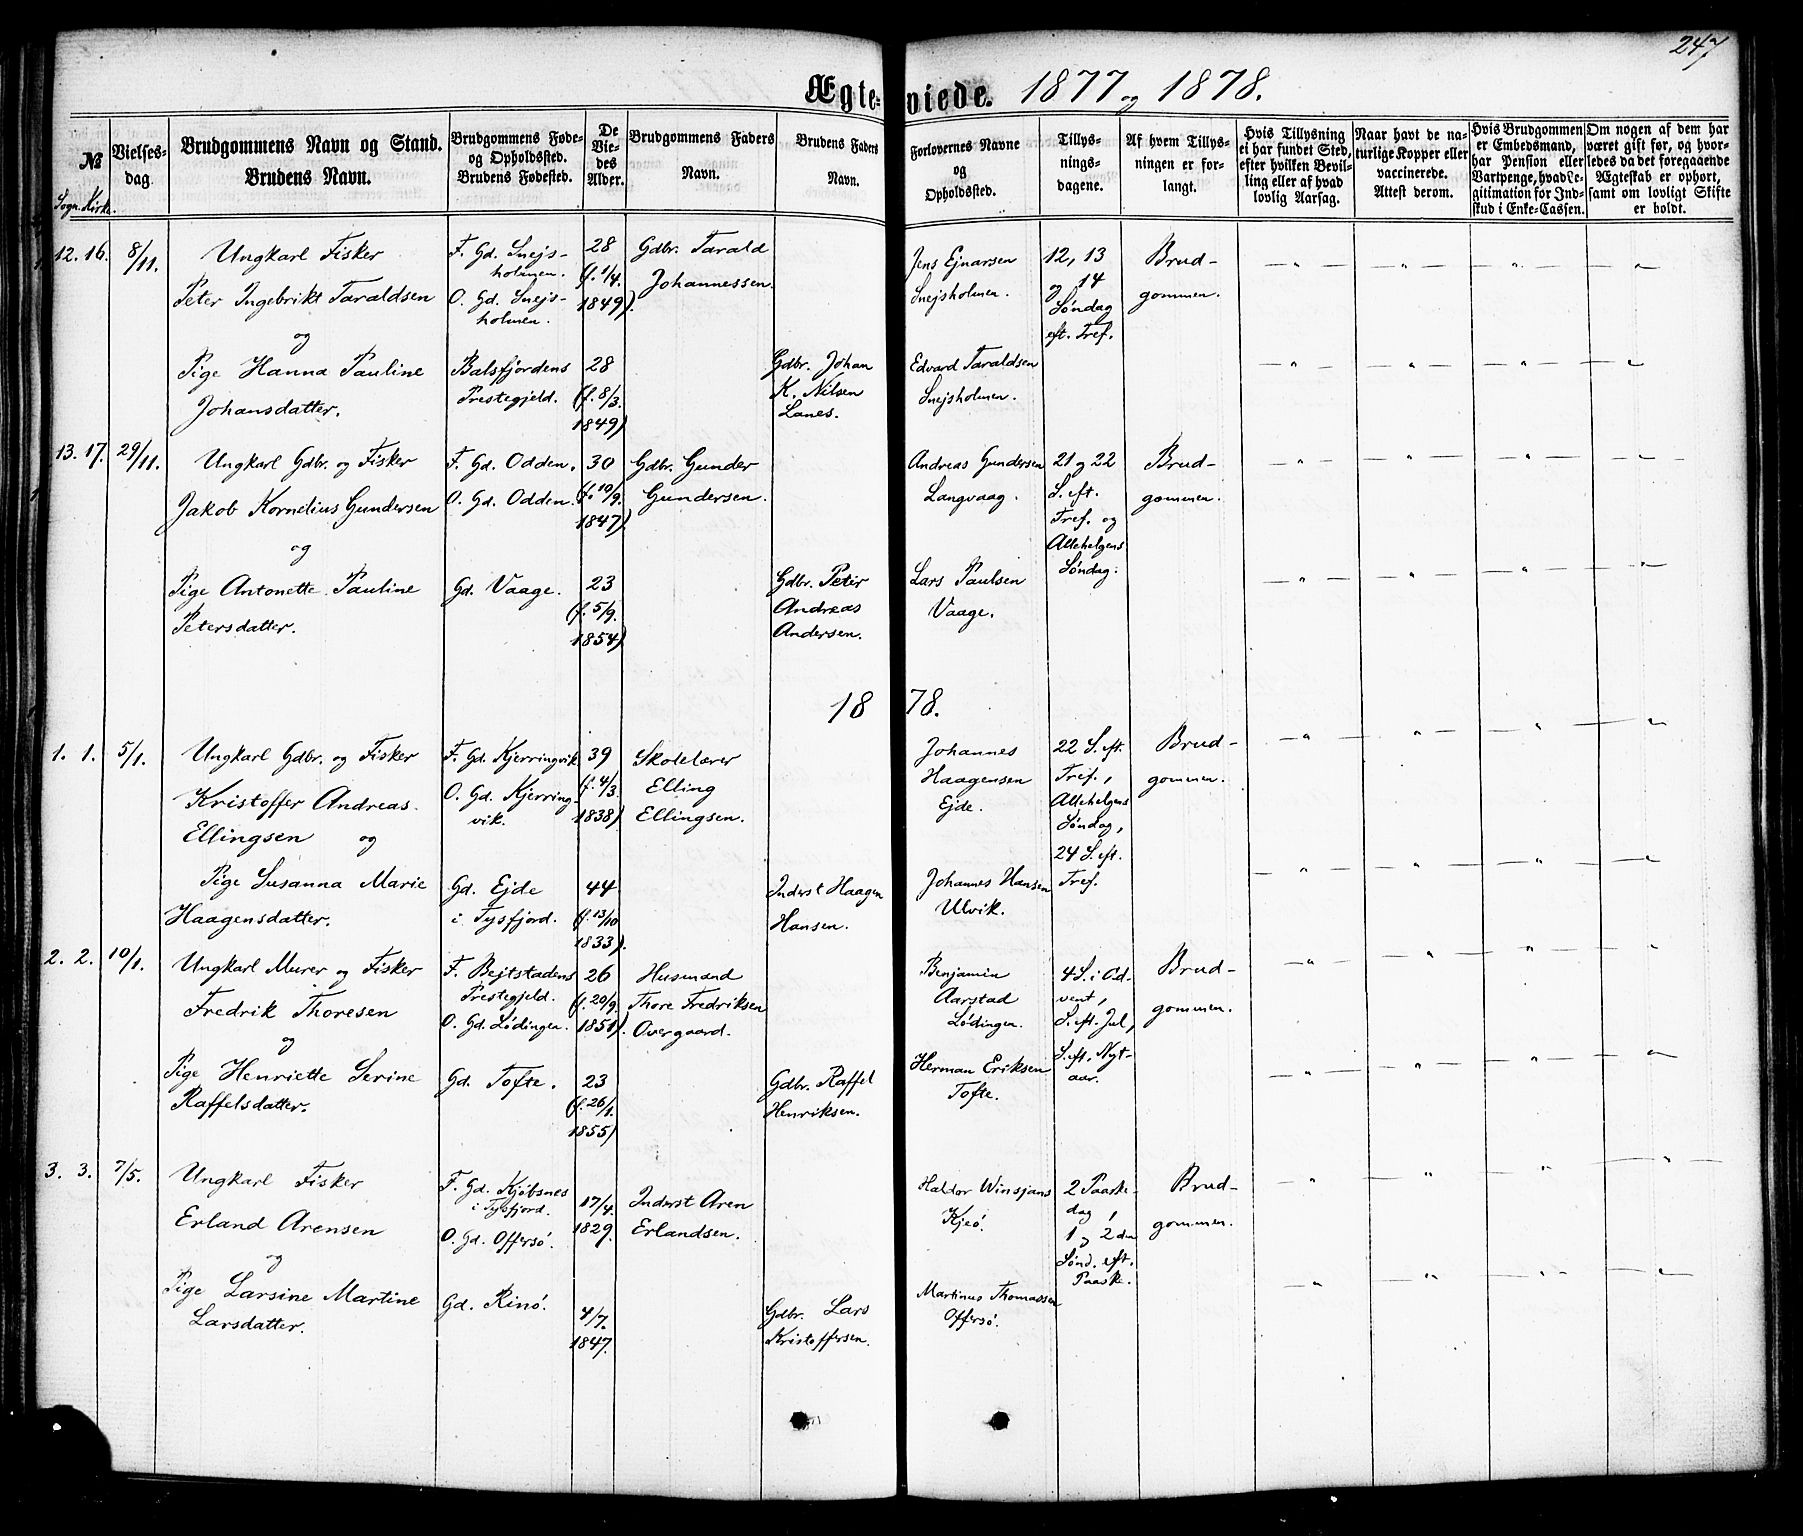 247
Ægteviede. 1877 og 1878.
№
Sogn. Kirke.
Vielses-
dag.
Brudgommens Navn og Stand.
Brudens Navn.
Brudgommens Føde-
og Opholdssted.
Brudens Fødested.
De
Vie-
des
Alder.
Brudgommens Faders
Navn.
Brudens Faders
Navn.
Forlovernes Navne
og
Opholdssted.
Tillys-
nings-
dagene.
Af hvem Tillys-
ningen er for-
langt.
Hvis Tillysning
ei har fundet Sted,
efter hvilken Bevil-
ling eller af hvad
lovlig Aarsag.
Naar havt de na-
turlige Kopper eller
vaccinerede.
Attest derom.
Hvis Brudgommen
er Embedsmand,
har Pension eller
Vartpenge, hvad Le-
gitimation for Ind-
skud i Enke-Cassen.
Om nogen af dem har
været gift før, og hvor-
ledes da det foregaaende
Ægteskab er ophørt,
samt om lovligt Skifte
er holdt.
12. 16. 8/11.
Ungkarl Fisker
Peter Ingebrikt Taraldsen
og
Pige Hanna Pauline
Johansdatter.
F. Gd. Snejs-
holmen.
O. Gd. Snejs-
holmen.
Balsfjordens
Prestegjeld.
28
(f. 1/4.
1849).
28
(f. 8/3.
1849)
Gdbr. Tarald
Johannessen.
Gdbr. Johan
K. Nilsen
Lanes.
Jens Ejnarsen
Snejsholmen.
Edvard Taraldsen
Snejsholmen.
12, 13
og 14
Søndag
eft. Tref.
Brud-
gommen.
13. 17. 29/11.
Ungkarl Gdbr. og Fisker
Jakob Kornelius Gundersen
og
Pige Antonette Pauline
Petersdatter.
F. Gd. Odden.
O. Gd. Odden.
Gd. Vaage.
30
(f. 10/9.
1847)
23
(f. 5/9.
1854)
Gdbr. Gunder
Gundersen.
Gdbr. Peter
Andreas
Andersen.
Andreas Gundersen
Langvaag.
Lars Paulsen
Vaage.
21 og 22
S. eft.
Tref. og
Allehelgens
Søndag.
Brud-
gommen.
1878.
1. 1. 5/1.
Ungkarl Gdbr. og Fisker
Kristoffer Andreas
Ellingsen og
Pige Susanna Marie
Haagensdatter.
F. Gd. Kjerringvik
O. Gd. Kjerring-
vik.
Gd. Ejde
i Tysfjord.
39
(f. 4/3.
1838)
44
(f. 13/10
1833).
Skolelærer
Elling
Ellingsen.
Inderst Haagen
Hansen.
Johannes
Haagensen
Ejde.
Johannes Hansen
Ulvik.
22 S. eft.
Tref.,
Allehelgens
Søndag,
24 S. eft.
Tref.
Brud-
gommen.
2. 2. 10/1.
Ungkarl Murer og Fisker
Fredrik Thoresen
og
Pige Henriette Serine
Raffelsdatter.
F. Bejtstadens
Prestegjeld.
O. Gd. Lødingen.
Gd. Tofte.
26
(f. 20/9.
1851).
23
(f. 26/1.
1855)
Husmand
Thore Fredriksen
Overgaard.
Gdbr. Raffel
Henriksen.
Benjamin
Aarstad
Lødingen.
Herman Eriksen
Tofte.
4 S. i Ad-
vent,
S. eft. Jul,
S. eft. Nyt-
aar.
Brud-
gommen.
3. 3. 7/5.
Ungkarl Fisker
Erland Arensen
og
Pige Larsine Martine
Larsdatter.
F. Gd. Kjøbsnes
i Tysfjord.
O. Gd. Offersø.
Gd. Rinø.
17/4.
1829.
4/7.
1847.
Inderst Aren
Erlandsen.
Gdbr. Lars
Kristoffersen.
Haldor Winsjans
Kjeø.
Martinus Thomassen
Offersø.
2 Paaske-
dag,
1 og 2den
Sønd. eft.
Paaske.
Brud-
gommen.